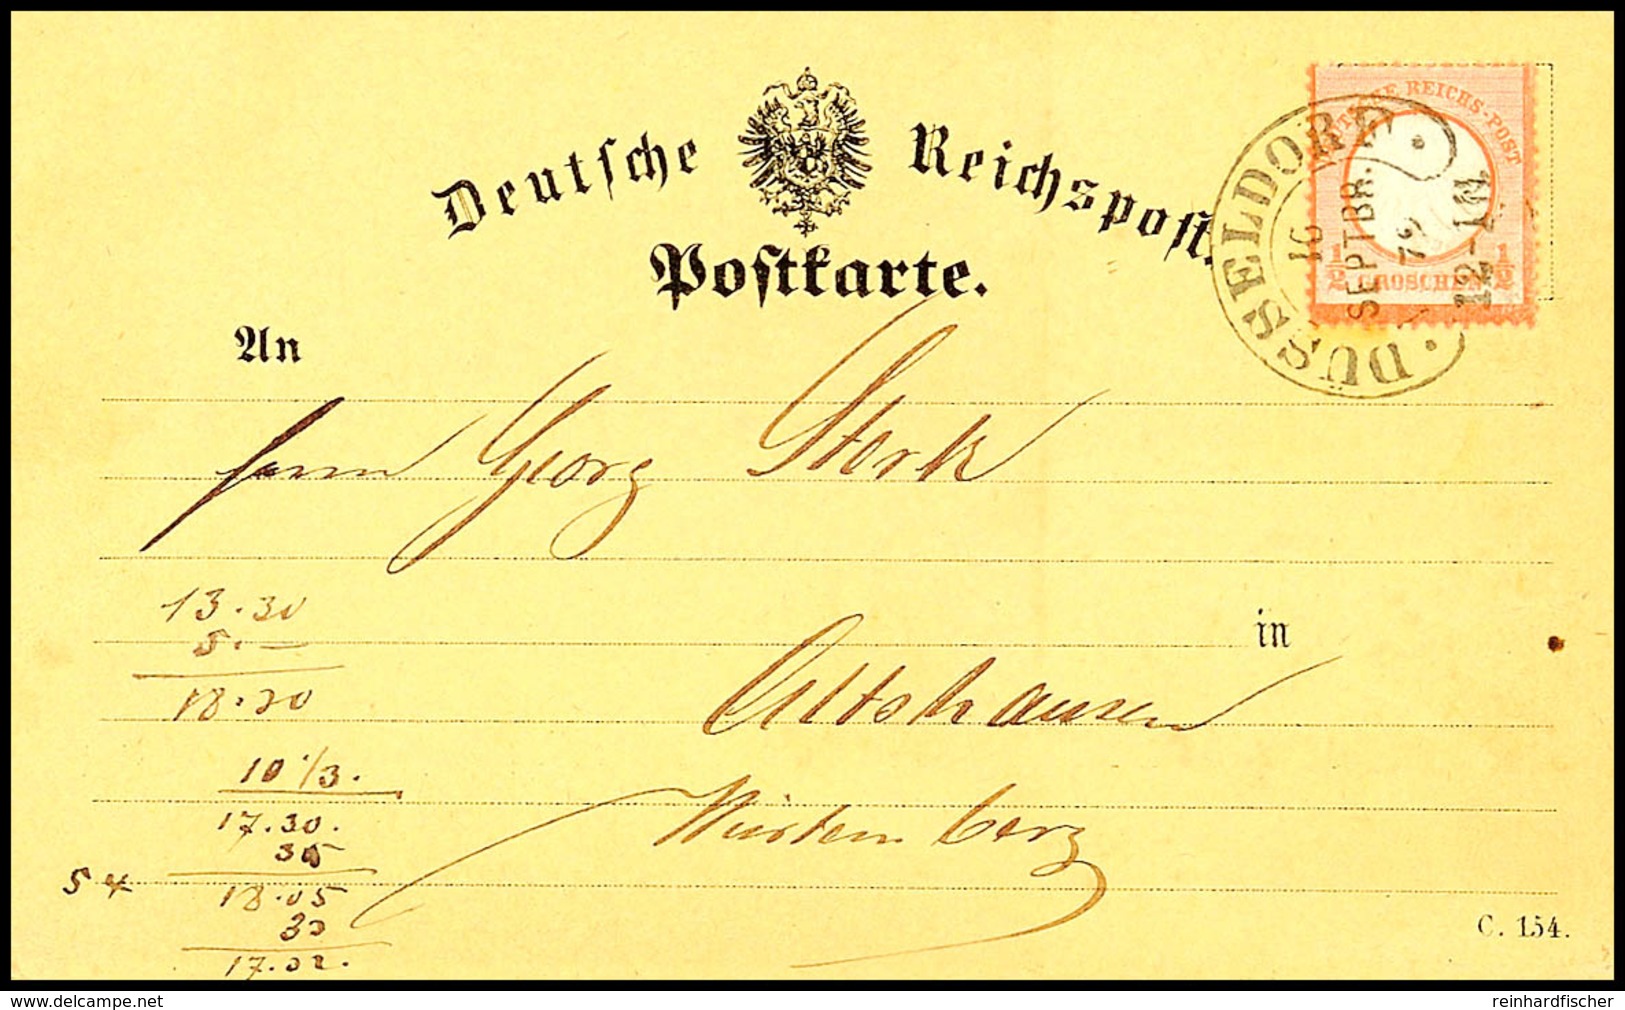 Deutſche Reichspoſt.
Poſtkarte.
REICHS-POST
1/2 GROSCHEN 1/2
DÜSSELDORF
16
SEPTBR.
12-1 N
An
Herrn Georg Stork
13.30
5.—
in
18.30
Altshausen
10 1/3.
Würtemberg
17.30.
35
5 4
18.05
C. 154.
17.02.
www.delcampe.net
reinhardfischer